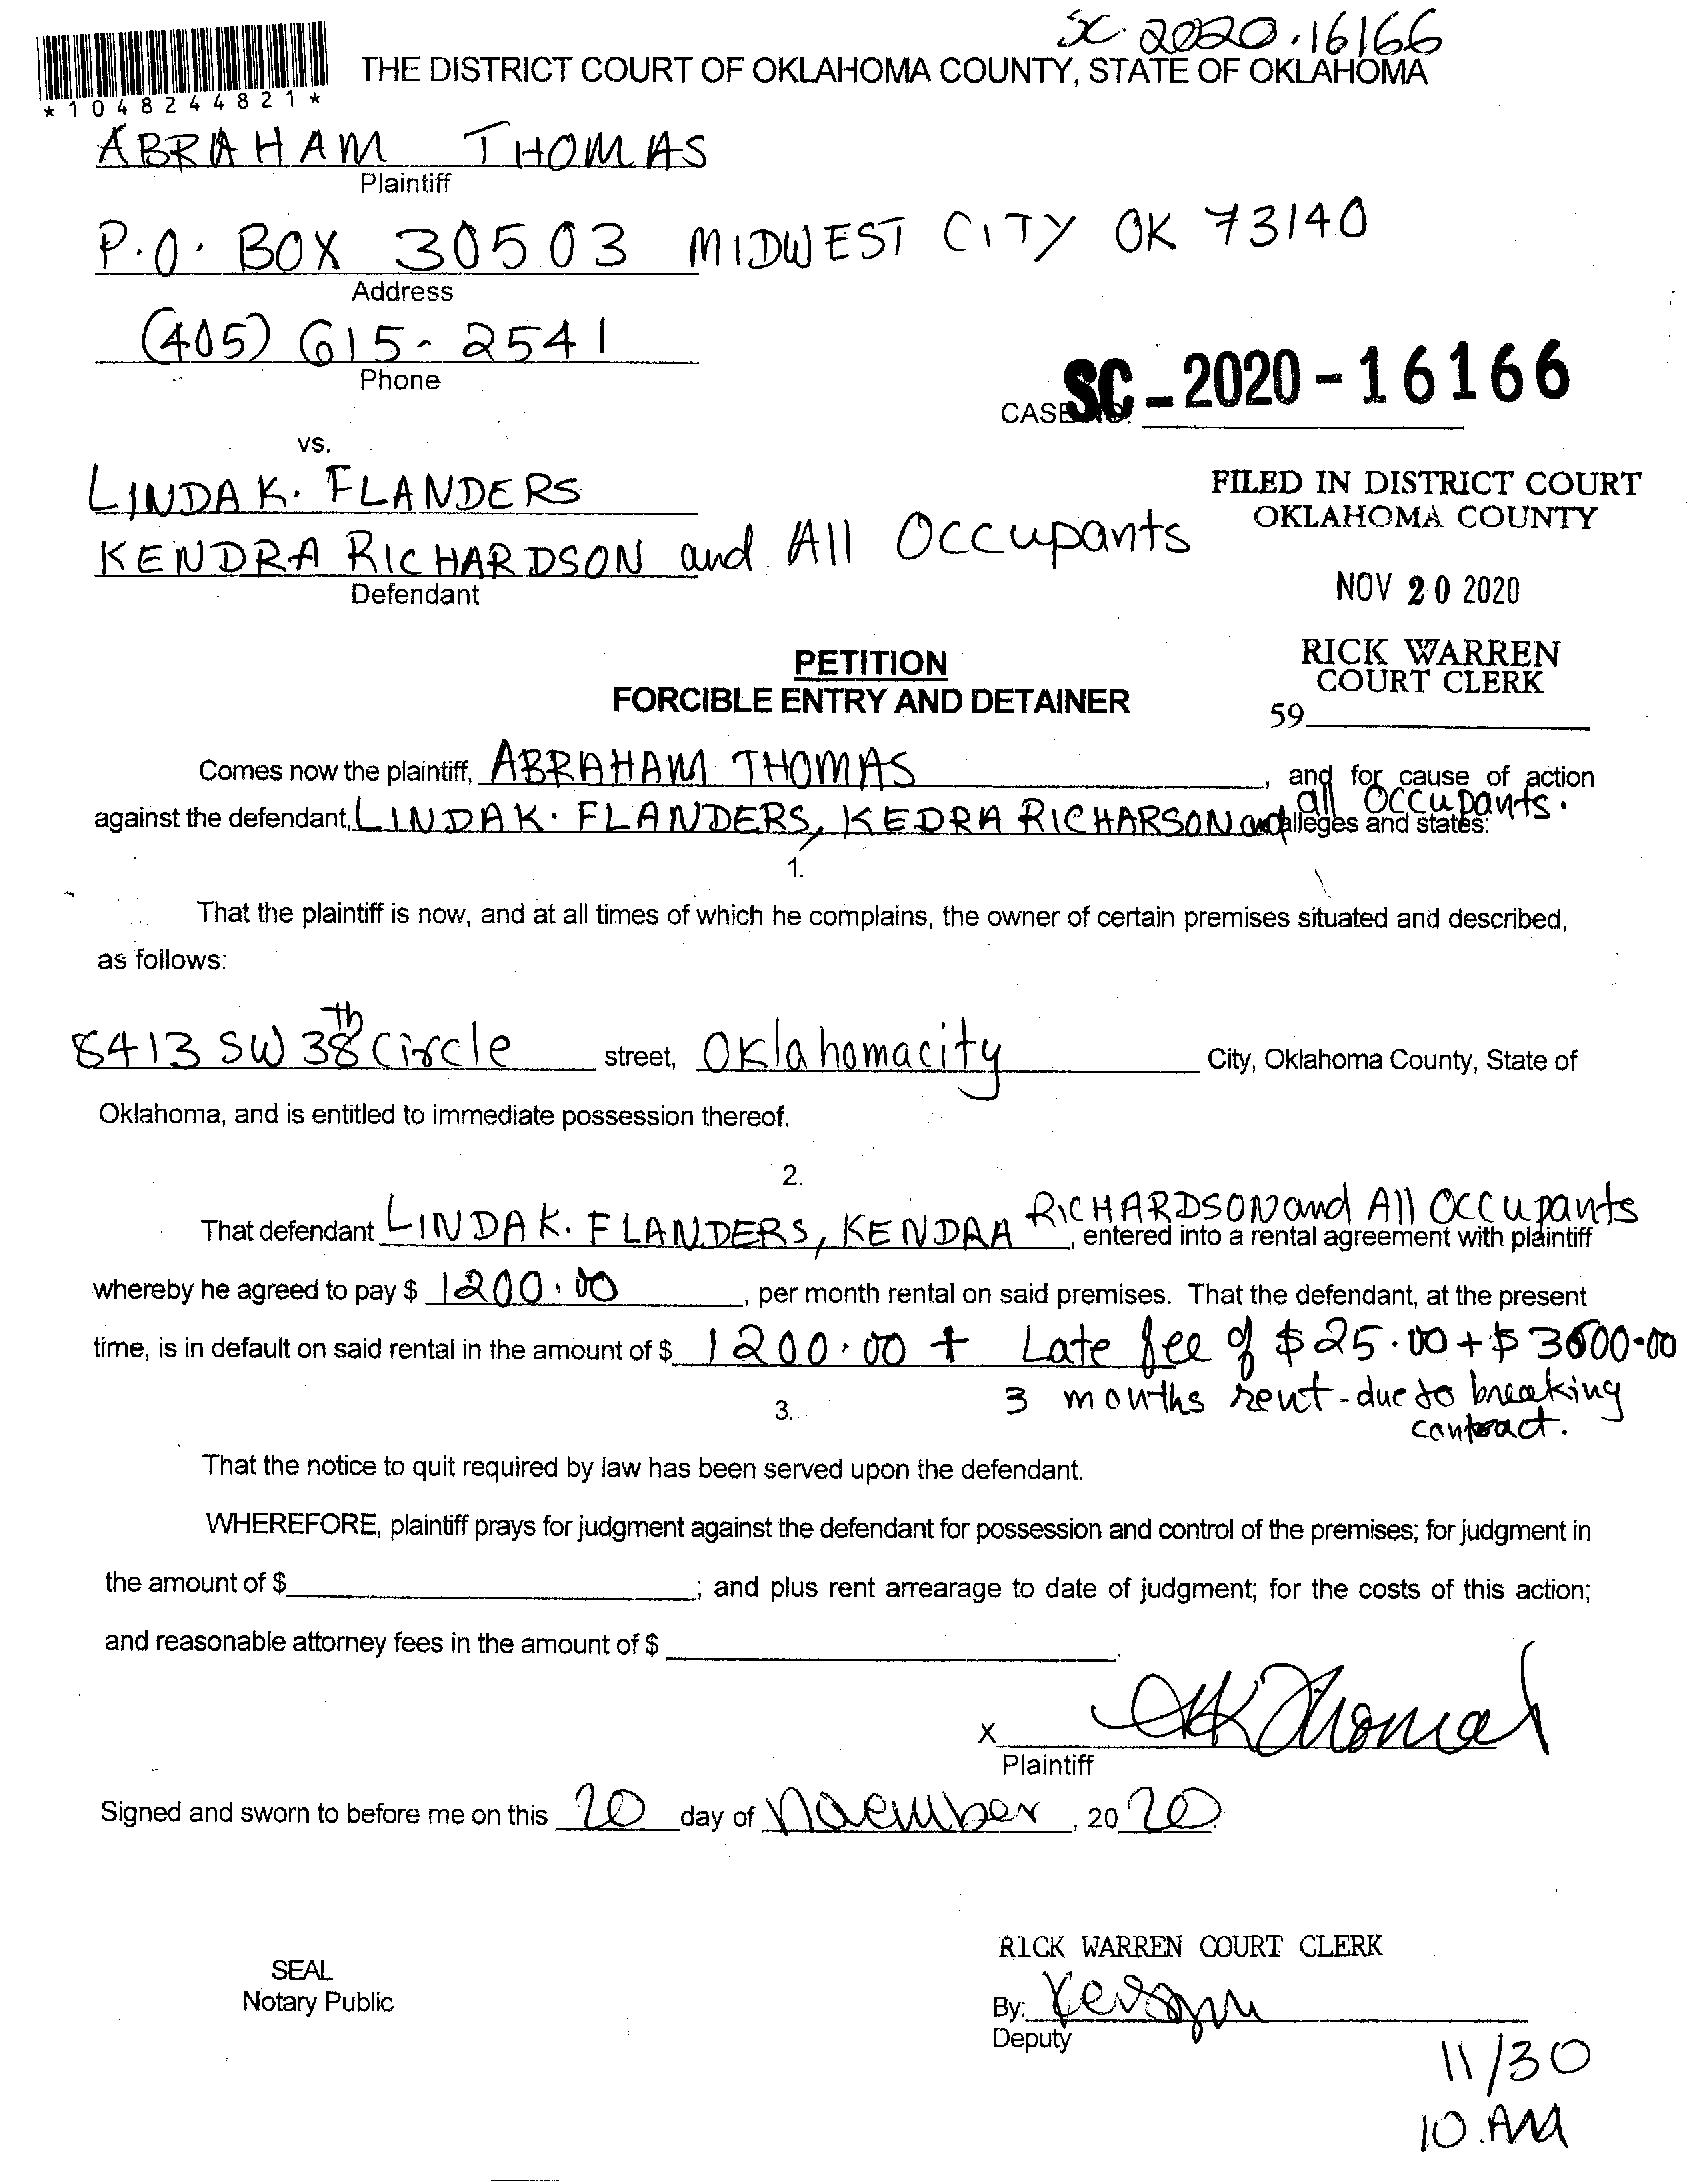 SC-2020-16166
*1048244821*
THE DISTRICT COURT OF OKLAHOMA COUNTY, STATE OF OKLAHOMA
ABRAHAM THOMAS
Plaintiff
P.O. BOX 30503 MIDWEST CITY OK 73140
Address
(405) 615-2541
Phone
CASE NO. SC-2020-16166
vs.
LINDA K. FLANDERS
KENDRA RICHARDSON and All Occupants
Defendant
FILED IN DISTRICT COURT
OKLAHOMA COUNTY
NOV 20 2020
RICK WARREN
COURT CLERK
59
PETITION
FORCIBLE ENTRY AND DETAINER
Comes now the plaintiff, ABRAHAM THOMAS, and for cause of action
against the defendant, LINDA K. FLANDERS, KEDRA RICHARSON and all Occupants. alleges and states:
1.
That the plaintiff is now, and at all times of which he complains, the owner of certain premises situated and described,
as follows:
8413 SW 38th Circle street, Oklahomacity City, Oklahoma County, State of
Oklahoma, and is entitled to immediate possession thereof.
2.
That defendant LINDA K. FLANDERS, KENDRA RICHARDSON and All Occupants, entered into a rental agreement with plaintiff
whereby he agreed to pay $ 1200.00, per month rental on said premises. That the defendant, at the present
time, is in default on said rental in the amount of $ 1200.00 + Late fee of $25.00 + $3600.00
3 months rent - due to breaking
contract.
3.
That the notice to quit required by law has been served upon the defendant.
WHEREFORE, plaintiff prays for judgment against the defendant for possession and control of the premises; for judgment in
the amount of $; and plus rent arrearage to date of judgment; for the costs of this action;
and reasonable attorney fees in the amount of $.
X AK Thomas
Plaintiff
Signed and sworn to before me on this 20 day of November, 2020
RICK WARREN COURT CLERK
SEAL
Notary Public
By:
Deputy
11/30
10 AM